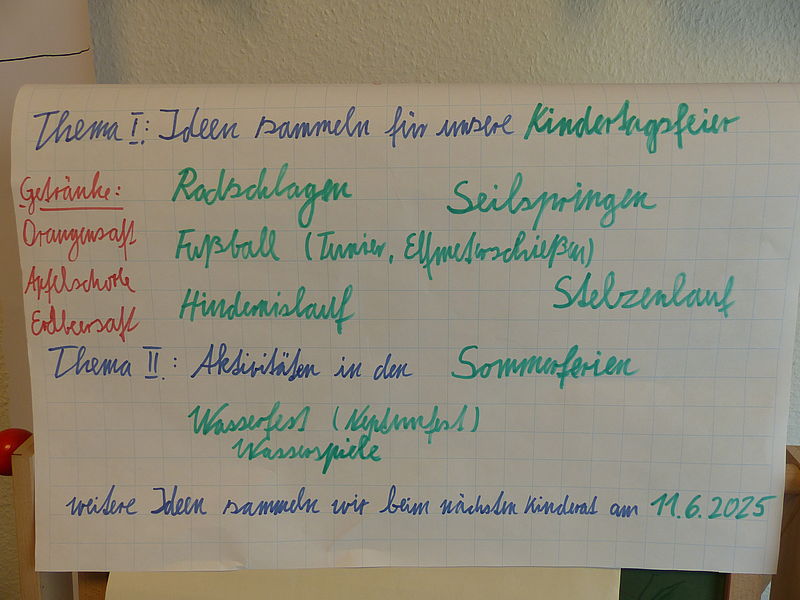 Thema I: Ideen sammeln für unsere Kindertagsfeier
Getränke:
Orangensaft
Apfelschorle
Erdbeersaft
Radschlagen
Seilspringen
Fußball (Turnier, Elfmeterschießen)
Hindernislauf
Stelzenlauf
Thema II: Aktivitäten in den Sommerferien
Wasserfest (Neptunfest)
Wasserspiele
weitere Ideen sammeln wir beim nächsten Kinderrat am 11.6.2025